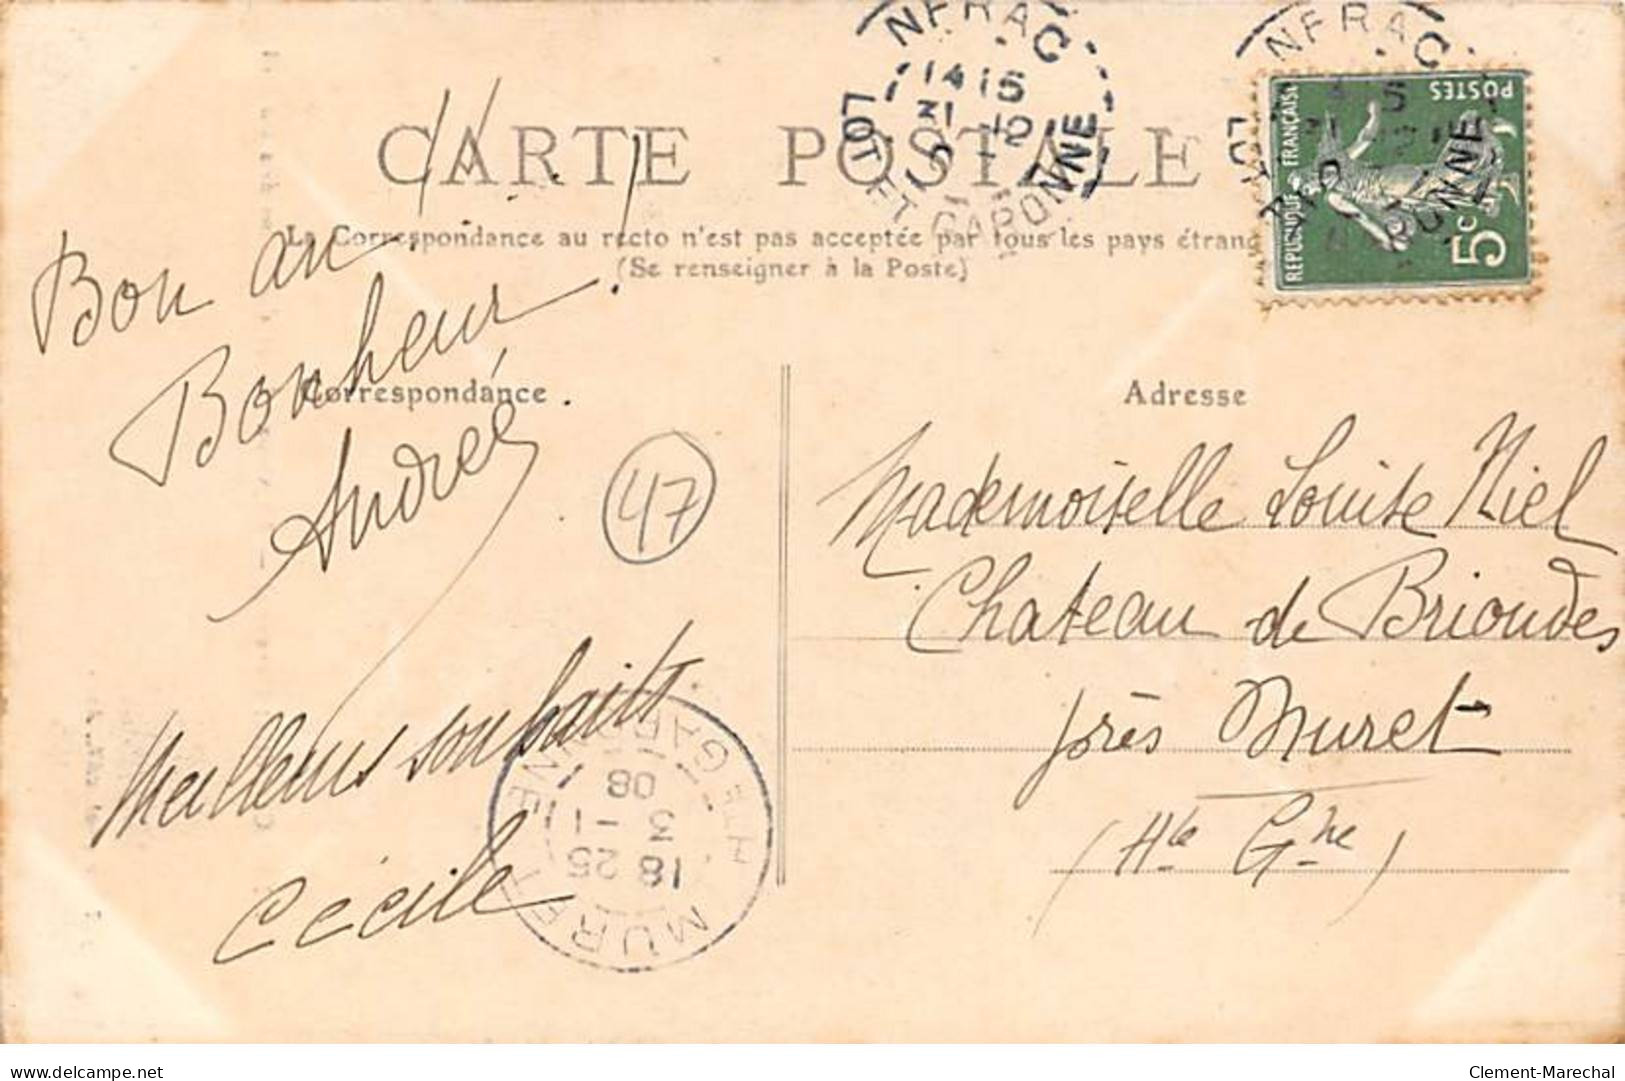 CARTE POSTALE
La Correspondance au recto n'est pas acceptée par tous les pays étran
(Se renseigner à la Poste)
NFRAC
14 15
31 12
07
LOT ET GARONNE
NFRAC
LOT
GARONNE
POSTES
REPUBLIQUE FRANÇAISE
5c
Bon an !
Bonheur !
Correspondance
Andrée
47
Meilleurs souhaits
Cécile
MURET
HTE GARONNE
18 25
3 -1
08
Adresse
Mademoiselle Louise Niel
Chateau de Brioudes
près Muret
(Hte Gne)
delcampe.net
Clement-Marechal